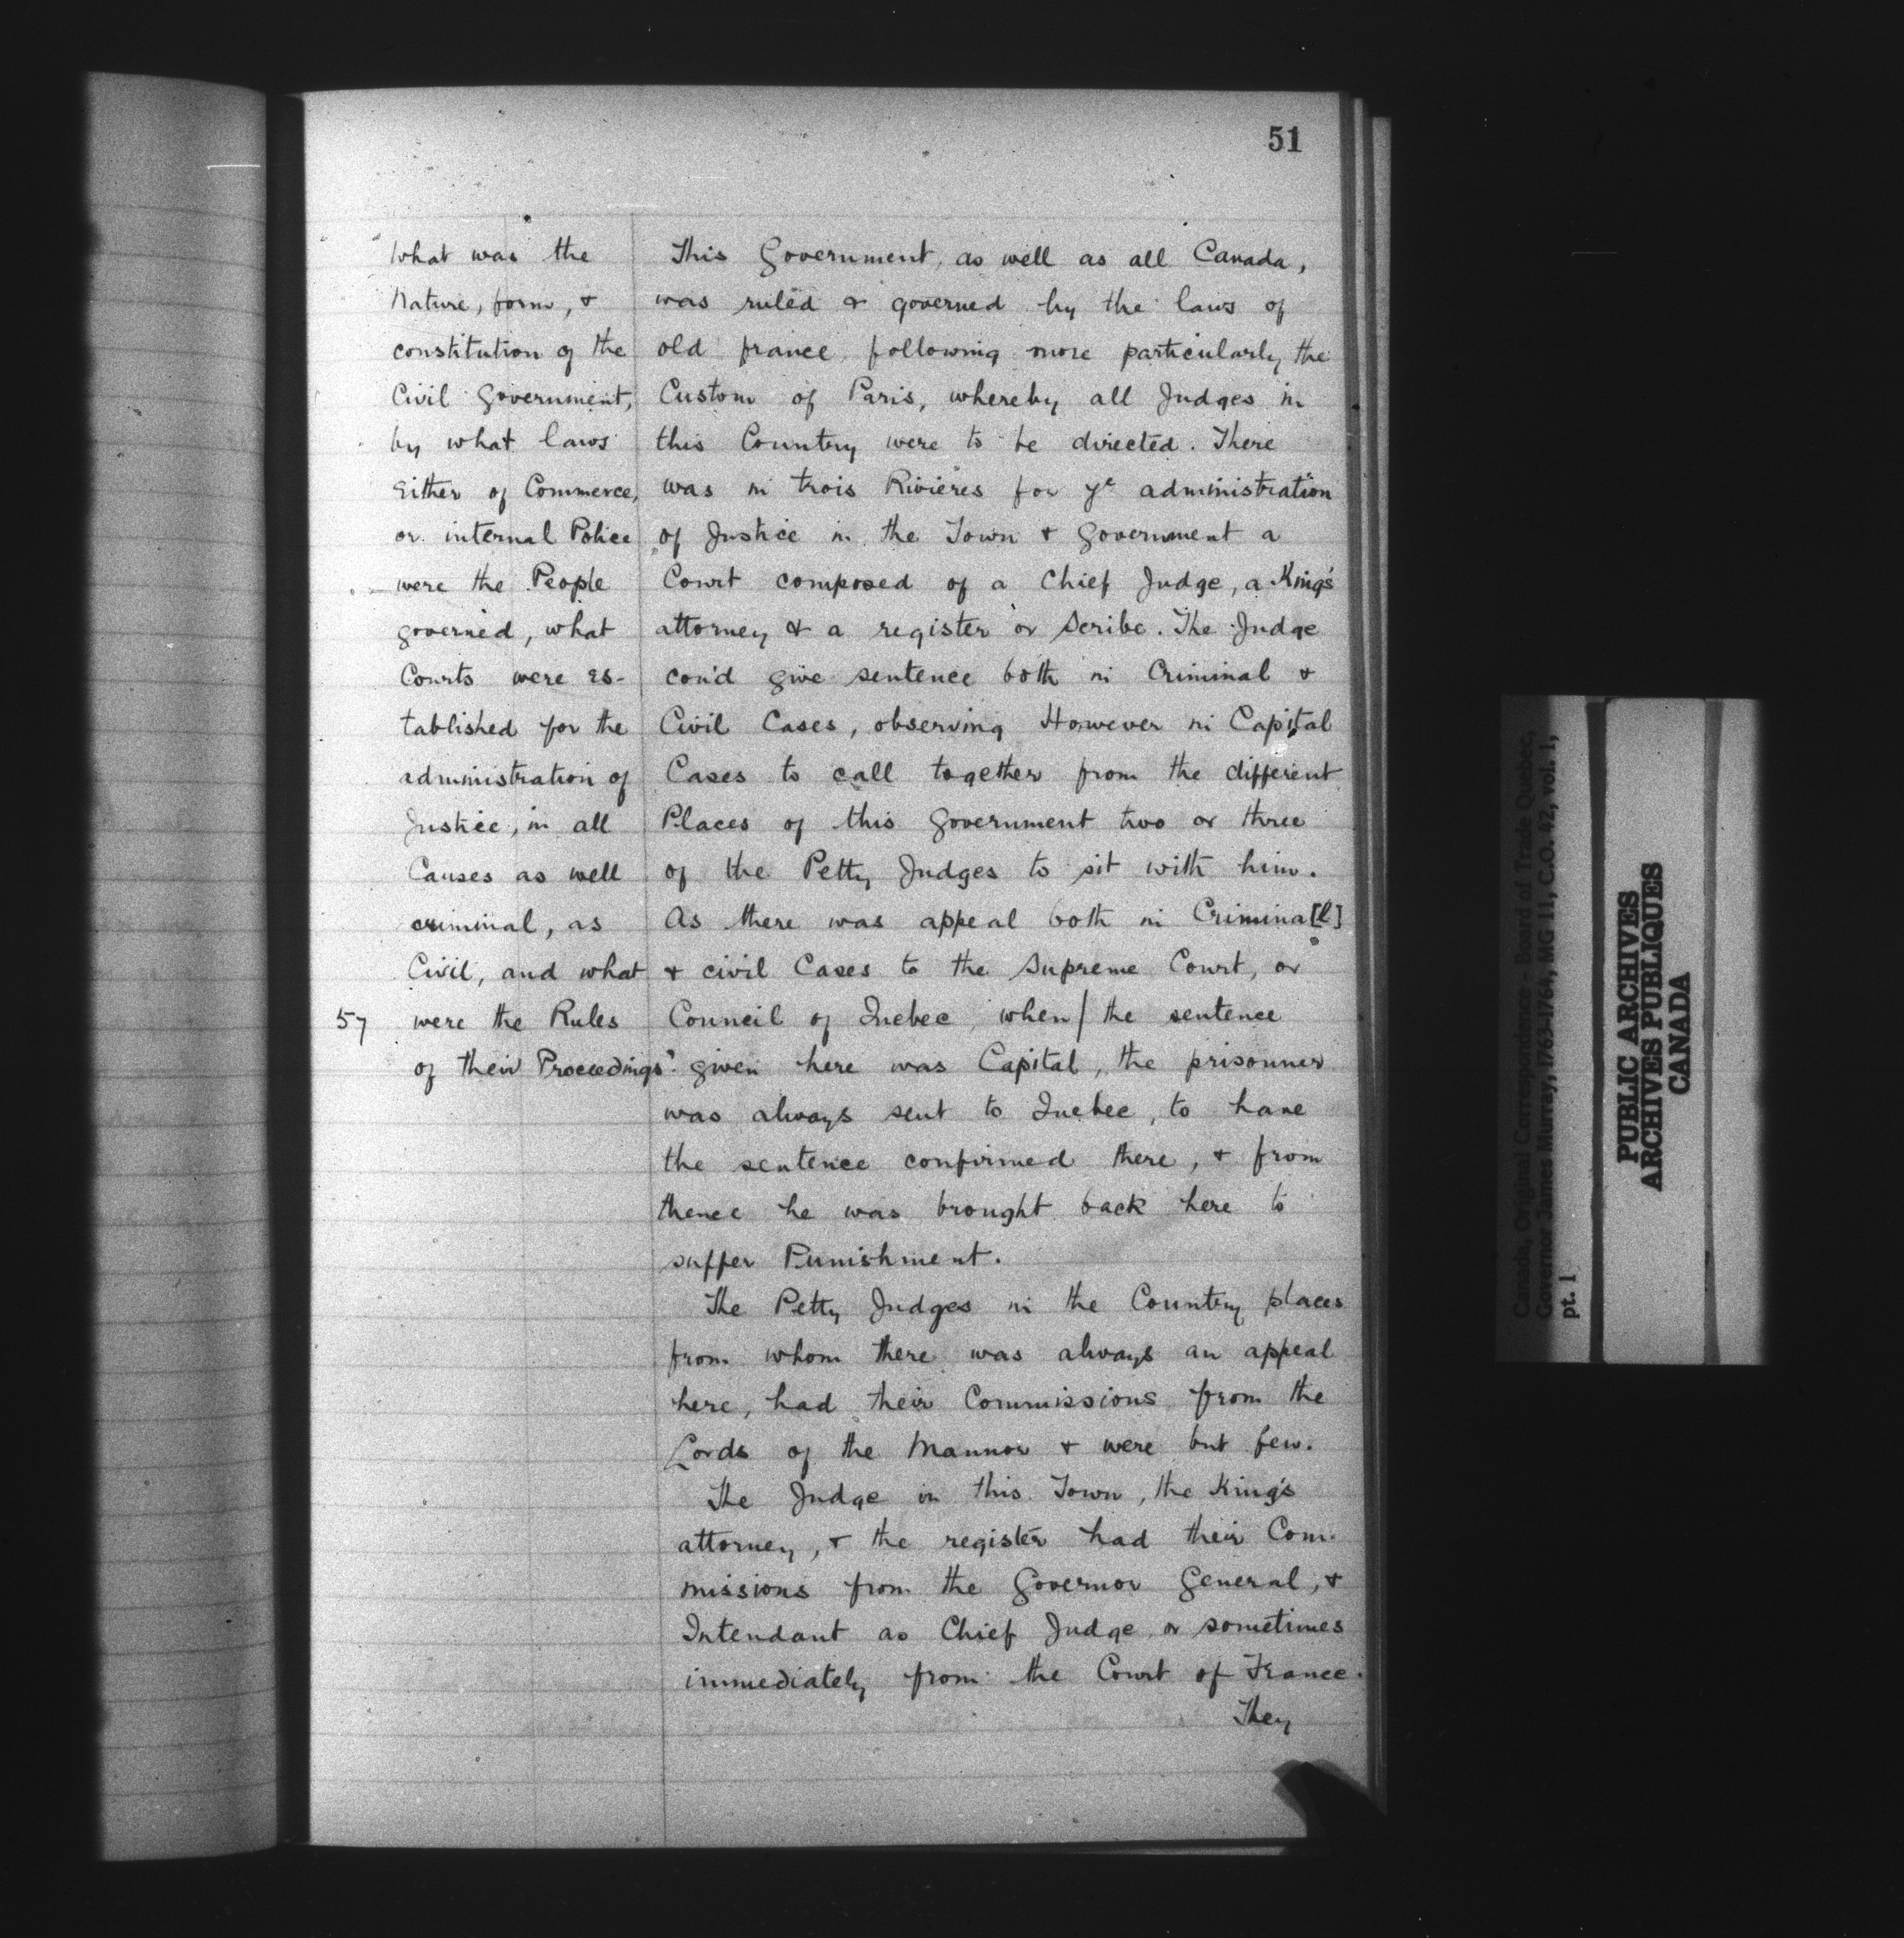 51
"What was the
Nature, form, &
constitution of the
Civil Government,
by what laws
Either of Commerce,
or internal Police
were the People
governed, what
Courts were es-
tablished for the
administration of
Justice, in all
Causes as well
criminal, as
Civil, and what
57 were the Rules
of their Proceedings".
This Government, as well as all Canada,
was ruled & governed by the laws of
old france, following more particularly the
Custom of Paris, whereby all Judges in
this Country were to be directed. There
was in trois Rivières for ye administration
of Justice in the Town & Government a
Court composed of a Chief Judge, a King's
attorney & a register or Scribe. The Judge
cou'd give sentence both in Criminal &
Civil Cases, observing However in Capital
Cases to call together from the different
Places of this Government two or three
of the Petty Judges to sit with him.
As there was appeal both in Crimina[l]
& civil Cases to the Supreme Court, or
Council of Quebec, when/the sentence
given here was Capital, the prisonner
was always sent to Quebec, to have
the sentence confirmed there, & from
thence he was brought back here to
suffer Punishment.
The Petty Judges in the Country places
from whom there was always an appeal
here, had their Commissions from the
Lords of the Mannor & were but few.
The Judge in this Town, the King's
attorney, & the register had their Com-
missions from the Governor General, &
Intendant as Chief Judge or sometimes
immediately from the Court of France.
They
Canada, Original Correspondence - Board of Trade Quebec,
Governor James Murray, 1763-1764, MG 11, C.O. 42, vol. 1,
pt. 1
PUBLIC ARCHIVES
ARCHIVES PUBLIQUES
CANADA